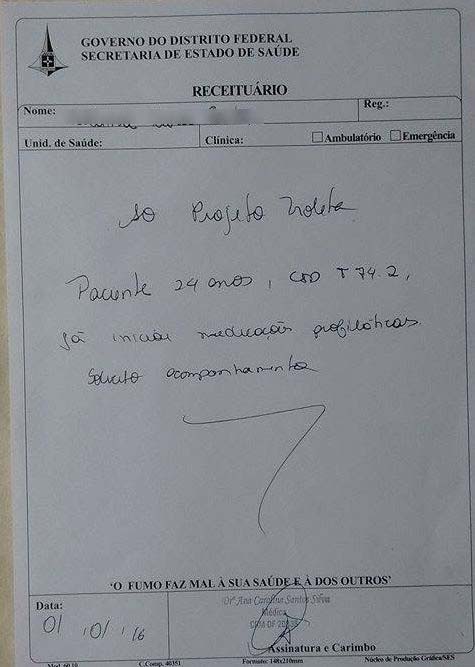 GOVERNO DO DISTRITO FEDERAL
SECRETARIA DE ESTADO DE SAÚDE
RECEITUÁRIO
Nome: Reg.:
Unid. de Saúde: Clínica: Ambulatório Emergência
Ao Projeto Violeta
Paciente 24 anos, CID T 74.2,
já iniciou medicação profiláticas.
Solicito acompanhamento
'O FUMO FAZ MAL À SUA SAÚDE E À DOS OUTROS'
Data:
01 / 01 / 16
Drª Ana Carolina Santos Silva
Médica
CRM-DF
Assinatura e Carimbo
Mod. 60.10 C.Comp. 40351 Formato: 148x210mm Núcleo de Produção Gráfica/SES